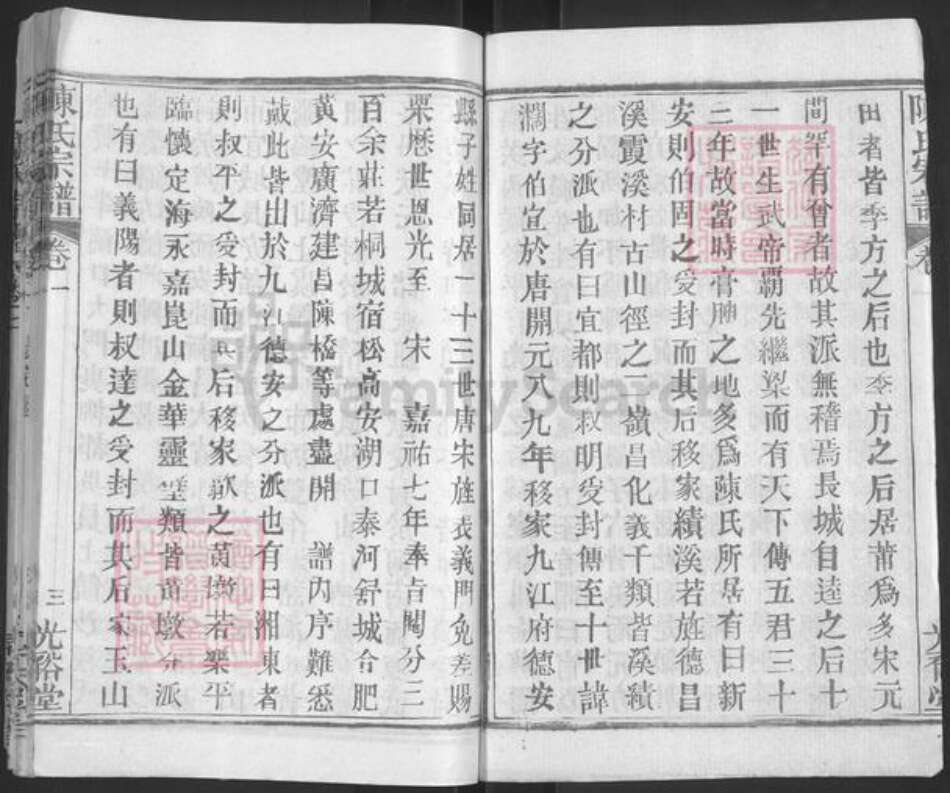 陳氏宗譜 卷一
田者皆季方之后也季方之后居莆爲多宋元
間罕有會者故其派無稽焉長城自逵之后十
一世生武帝霸先繼梁而有天下傳五君三十
三年故當時膏腴之地多爲陳氏所居有曰新
安則伯固之受封而其后移家績溪若旌德昌
溪霞溪村古山徑之三嶺昌化義千類皆溪績
之分派也有曰宜都則叔明受封傳至十世諱
濶字伯宣於唐開元六九年移家九江府德安
縣子姓同居一十三世唐宋旌表義門免差賜
粟歷世恩光至 宋嘉祐七年奉旨闖分三
百余莊若桐城宿松高安湖口泰河舒城合肥
黃安廣濟建昌陳橋等處盡開 譜内序難悉
戴此皆出於九江德安之分派也有曰湘東者
則叔平之受封而其后移家歙之若樂平
臨懷定海永嘉崑山金華靈類皆墩分派
也有曰義陽者則叔達之受封而其后家玉山
陳氏宗譜 卷一 三 光裕堂
FamilySearch